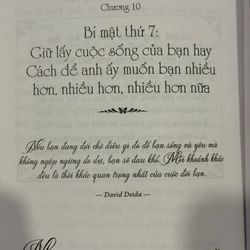 Chương 10
Bí mật thứ 7:
Giữ lấy cuộc sống của bạn hay
Cách để anh ấy muốn bạn nhiều
hơn, nhiều hơn, nhiều hơn nữa
Nếu bạn đang đợi chờ điều gì đó để sống và yêu mà
không ngập ngừng do dự, bạn sẽ đau khổ. Mỗi khoảnh khắc
đều là thời khắc quan trọng nhất của cuộc đời bạn.
— David Deida —